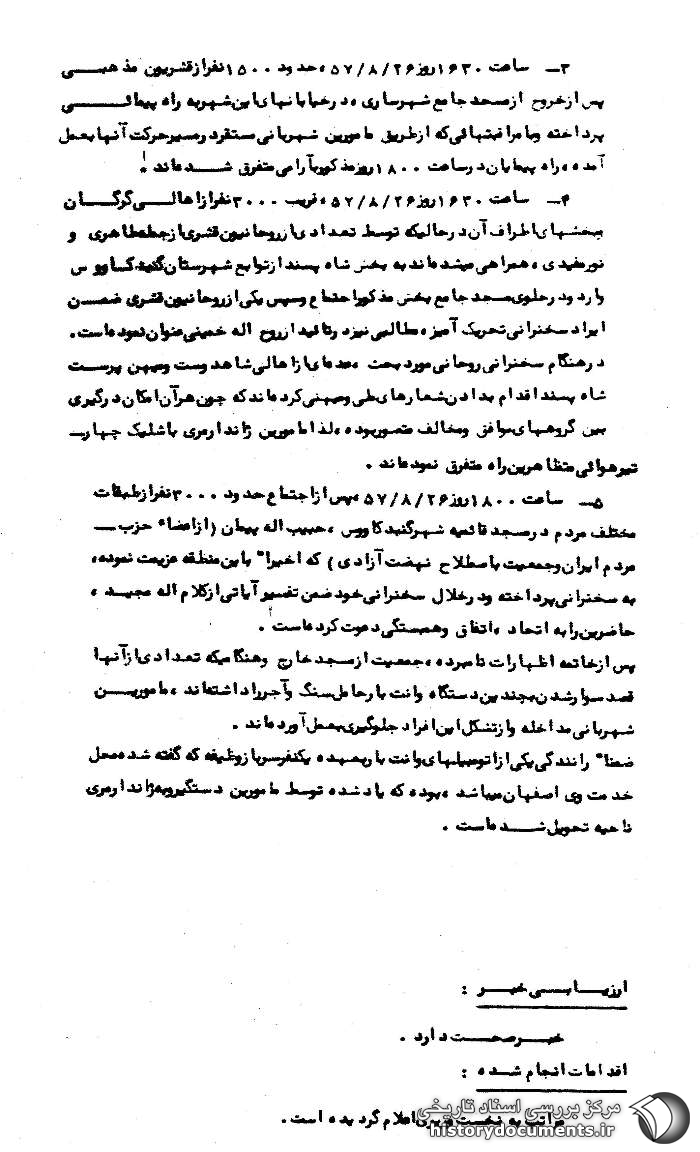 ۳ـ ساعت ۱۶۳۰ روز ۵۷/۸/۲۶، حدود ۱۵۰۰ نفر از قشریون مذهبی
پس از خروج از مسجد جامع شهر ساری، در خیابانهای این شهر به راه پیمائی
پرداخته و با مراقبتهائی که از طریق مامورین شهربانی مستقر در مسیر حرکت آنها بعمل
آمده، راه پیمایان در ساعت ۱۸۰۰ روز مذکور بآرامی متفرق شده‌اند.
۴ـ ساعت ۱۶۳۰ روز ۵۷/۸/۲۶، قریب ۳۰۰۰ نفر از اهالی گرگان
بخشهای اطراف آن در حالیکه توسط تعدادی از روحانیون قشری از جمله طاهری و
نورمفیدی، همراهی میشده‌اند به بخش شاه پسند از توابع شهرستان گنبد کاووس
وارد و در جلوی مسجد جامع بخش مذکور اجتماع و سپس یکی از روحانیون قشری ضمن
ایراد سخنرانی تحریک آمیز، مطالبی نیز در تائید از روح اله خمینی عنوان نموده‌است.
در هنگام سخنرانی روحانی مورد بحث، عده‌ای از اهالی شاهدوست و میهن پرست
شاه پسند اقدام بدادن شعارهای ملی و میهنی کرده‌اند که چون هر آن امکان درگیری
بین گروههای موافق و مخالف متصور بوده، لذا مامورین ژاندارمری با شلیک چهار
تیر هوائی متظاهرین را، متفرق نموده‌اند.
۵ـ ساعت ۱۸۰۰ روز ۵۷/۸/۲۶، پس از اجتماع حدود ۳۰۰۰ نفر از طبقات
مختلف مردم در مسجد قائمیه شهر گنبد کاووس، حبیب اله پیمان (از اعضاء حزب
مردم ایران و جمعیت باصطلاح نهضت آزادی) که اخیرا" باین منطقه عزیمت نموده،
به سخنرانی پرداخته و در خلال سخنرانی خود ضمن تفسیر آیاتی از کلام اله مجید،
حاضرین را به اتحاد، اتفاق و همبستگی دعوت کرده‌است.
پس از خاتمه اظهارات نامبرده، جمعیت از مسجد خارج و هنگامیکه تعدادی از آنها
قصد سوار شدن بچندین دستگاه وانت بار حامل سنگ و آجر را داشته‌اند، مامورین
شهربانی مداخله و از تشکل این افراد جلوگیری بعمل آورده‌اند.
ضمنا" رانندگی یکی از اتومبیلهای وانت بار بعهده یکنفر سرباز وظیفه که گفته شده محل
خدمت وی اصفهان میباشد، بوده که یاد شده توسط مامورین دستگیر و به ژاندارمری
ناحیه تحویل شده‌است.
ارزیابی خبر :
خبر صحت دارد.
اقدامات انجام شده :
مراتب به نخست وزیری اعلام گردیده است.
مرکز بررسی اسناد تاریخی
historydocuments.ir